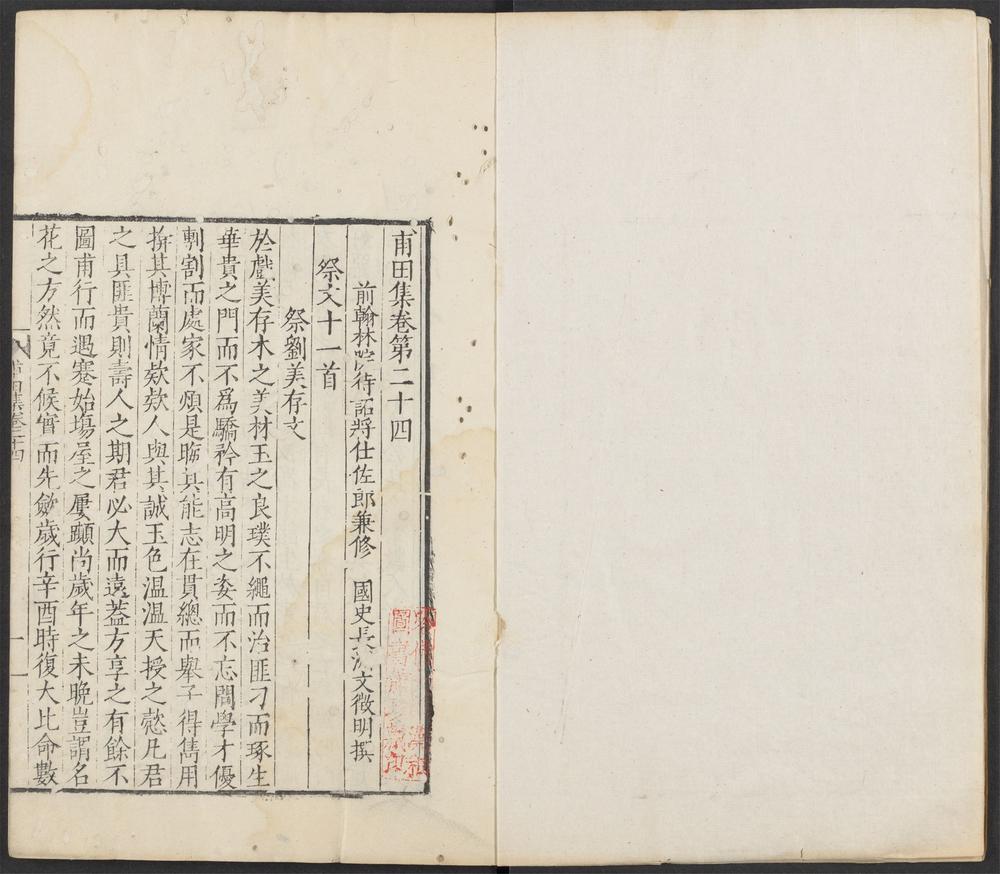 甫田集卷第二十四
前翰林院待詔將仕佐郎兼修　國史長洲文徵明撰
祭文十一首
祭劉美存文
於戲美存木之美材玉之良璞不繩而治匪刁而琢生
華貴之門而不爲驕矜有高明之姿而不忘問學才優
剸割而處家不煩是眎其能志在貫總而舉子得雋用
揜其博蘭情欵欵人與其誠玉色温温天授之慤凡君
之具匪貴則壽人之期君必大而遠葢方享之有餘不
圖甫行而遇蹇始塲屋之屢顚尚歲年之未晩豈謂名
花之方然竟不候實而先斂歲行辛酉時復大比命數
甫田集卷二十四
一